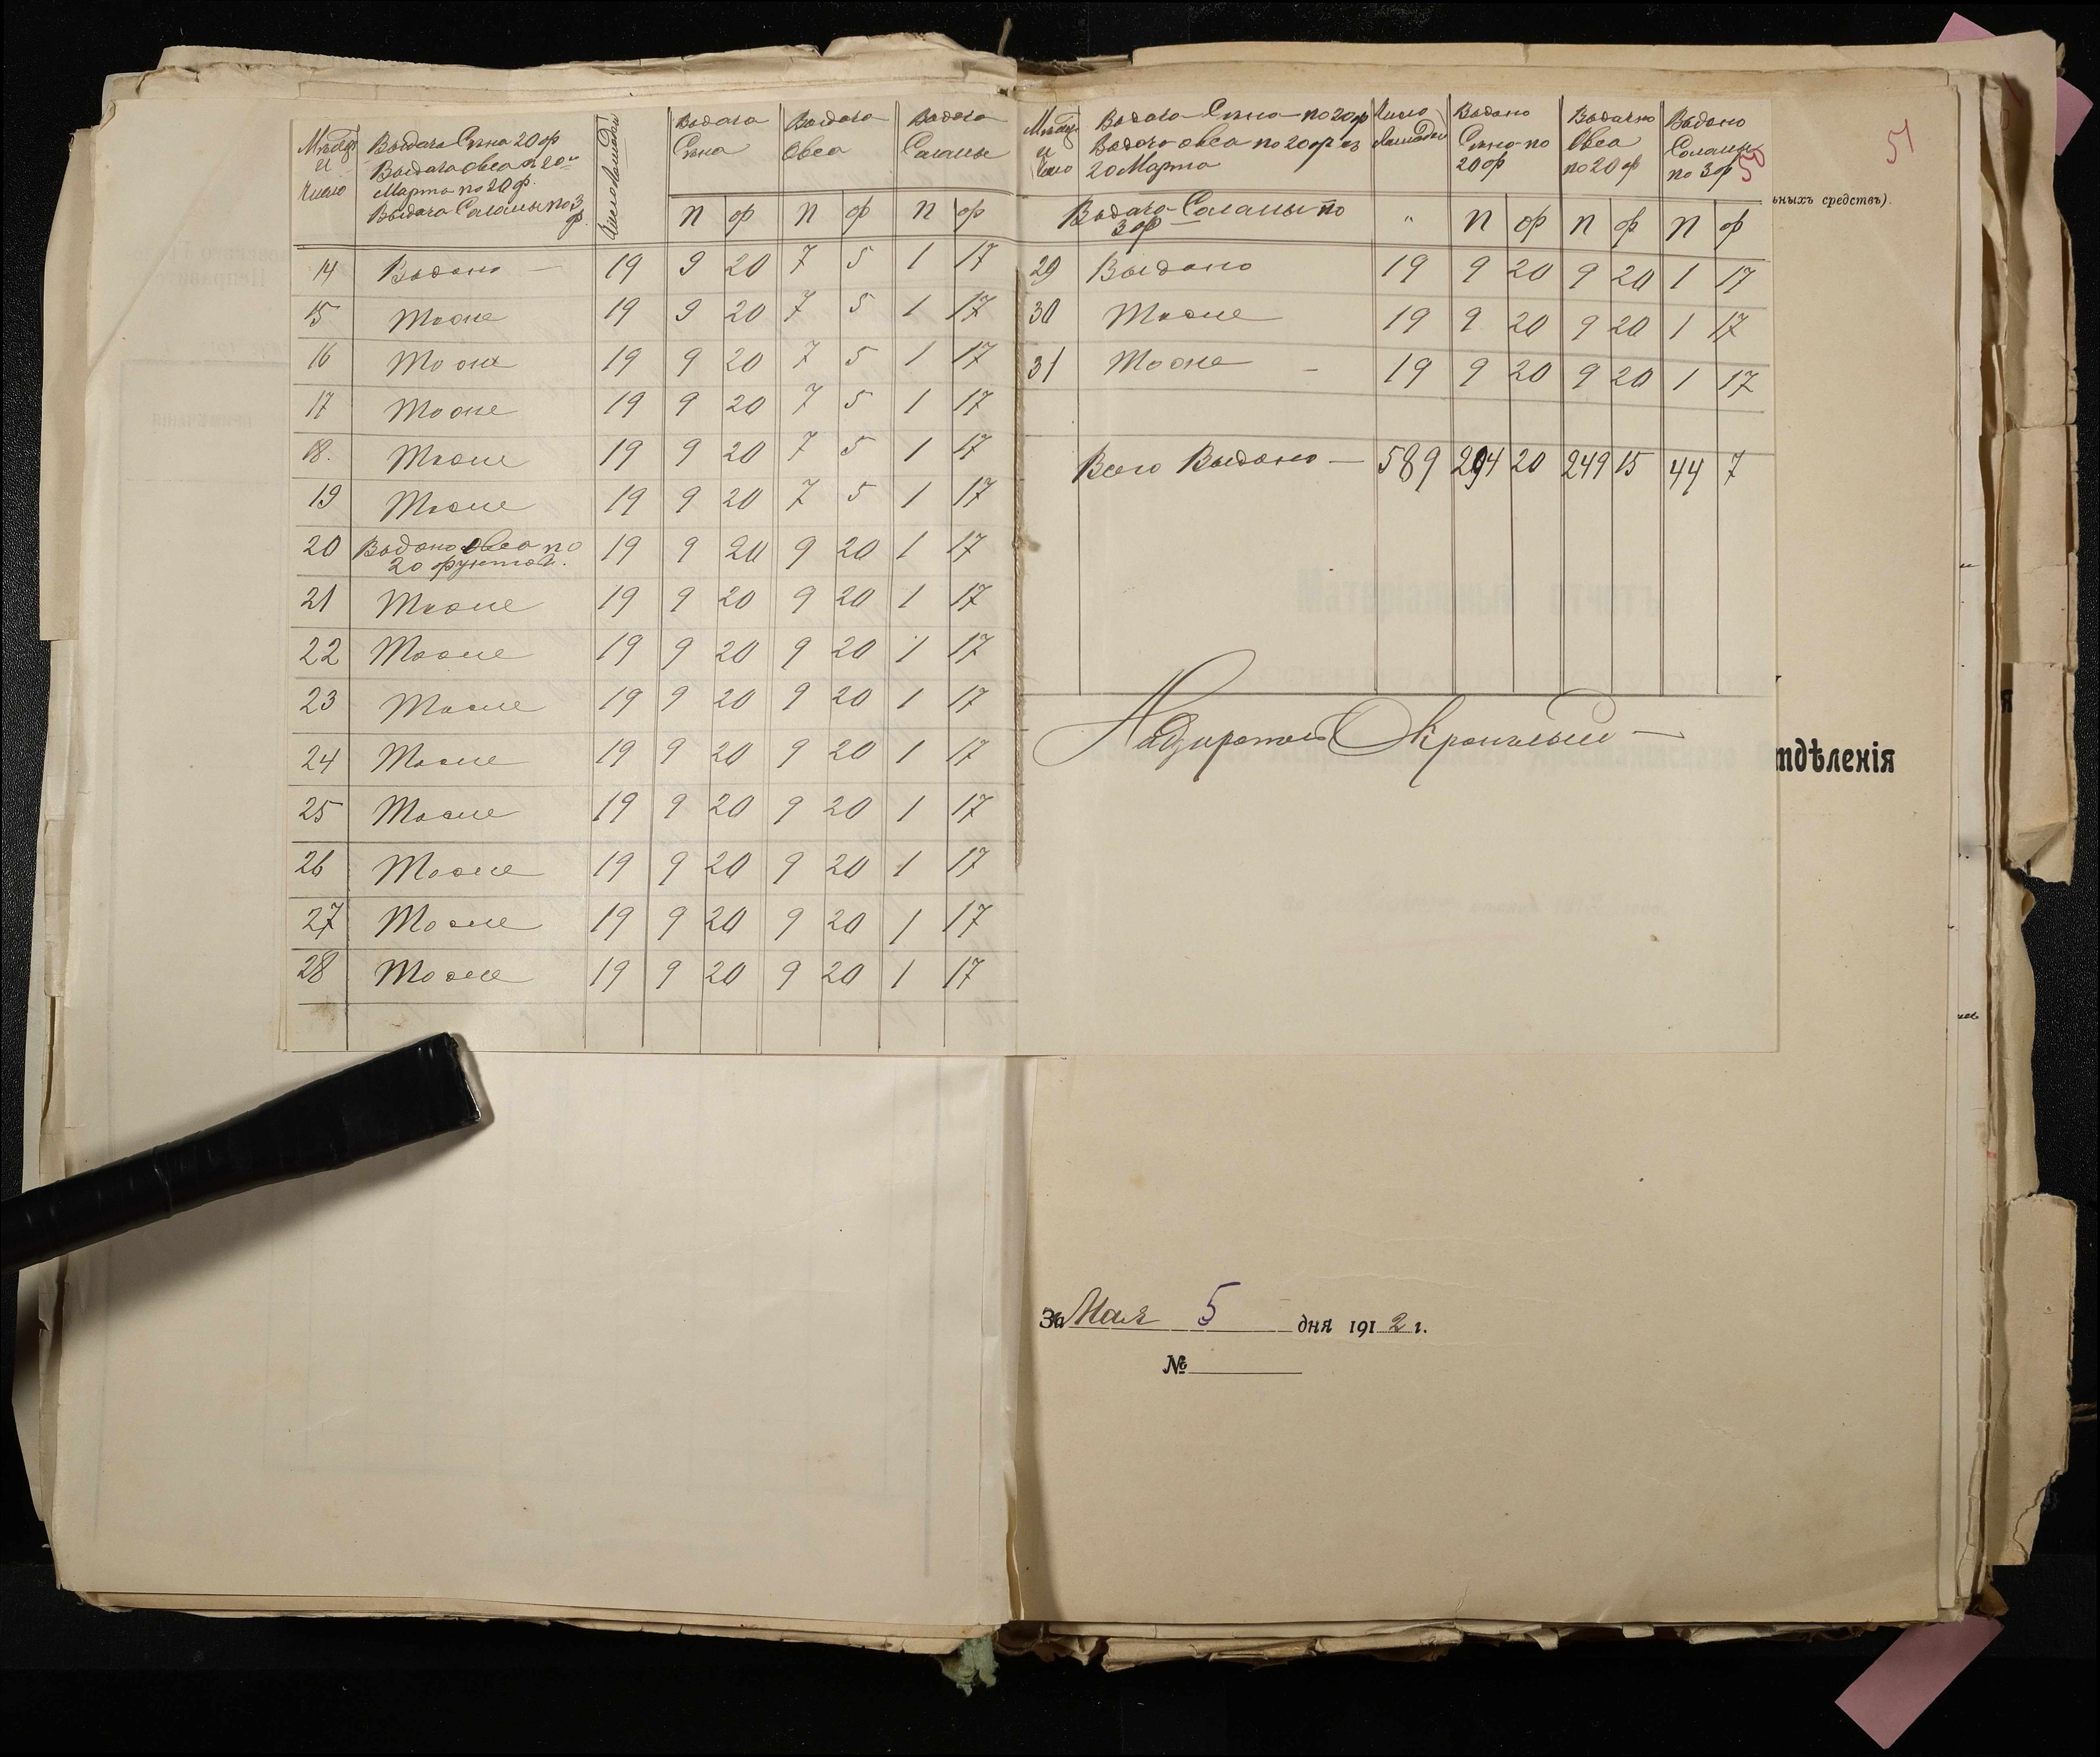 Мѣсяц и число | Выдача Сѣна 20 ф | Число Лошадей | Выдача Сѣна | Выдача Овса | Выдача Соломы
Выдача Овса съ 20го
Марта по 20 ф.
Выдача Соломы по 3 ф
п ф п ф п ф
14 Выдано — 19 9 20 7 5 1 17
15 Тоже 19 9 20 7 5 1 17
16 Тоже 19 9 20 7 5 1 17
17 Тоже 19 9 20 7 5 1 17
18. Тоже 19 9 20 7 5 1 17
19 Тоже 19 9 20 7 5 1 17
20 Выдано овса по 20 фунтов. 19 9 20 9 20 1 17
21 Тоже 19 9 20 9 20 1 17
22 Тоже 19 9 20 9 20 1 17
23 Тоже 19 9 20 9 20 1 17
24 Тоже 19 9 20 9 20 1 17
25 Тоже 19 9 20 9 20 1 17
26 Тоже 19 9 20 9 20 1 17
27 Тоже 19 9 20 9 20 1 17
28 Тоже 19 9 20 9 20 1 17
Мѣсяц и число | Выдача Сѣна по 20 ф | Число Лошадей | Выдано Сѣна по 20 ф | Выдачно Овса по 20 ф | Выдано Соломы по 3 ф
Выдача овса по 20 ф из
20 Марта
Выдача Соломы по 3 ф " п ф п ф п ф
29 Выдано 19 9 20 9 20 1 17
30 Тоже 19 9 20 9 20 1 17
31 Тоже — 19 9 20 9 20 1 17
Всего Выдано — 589 294 20 249 15 44 7
Надиратель
50
51
ьныхъ средствъ).
тдѣленія
За Мая 5 дня 1912 г.
№